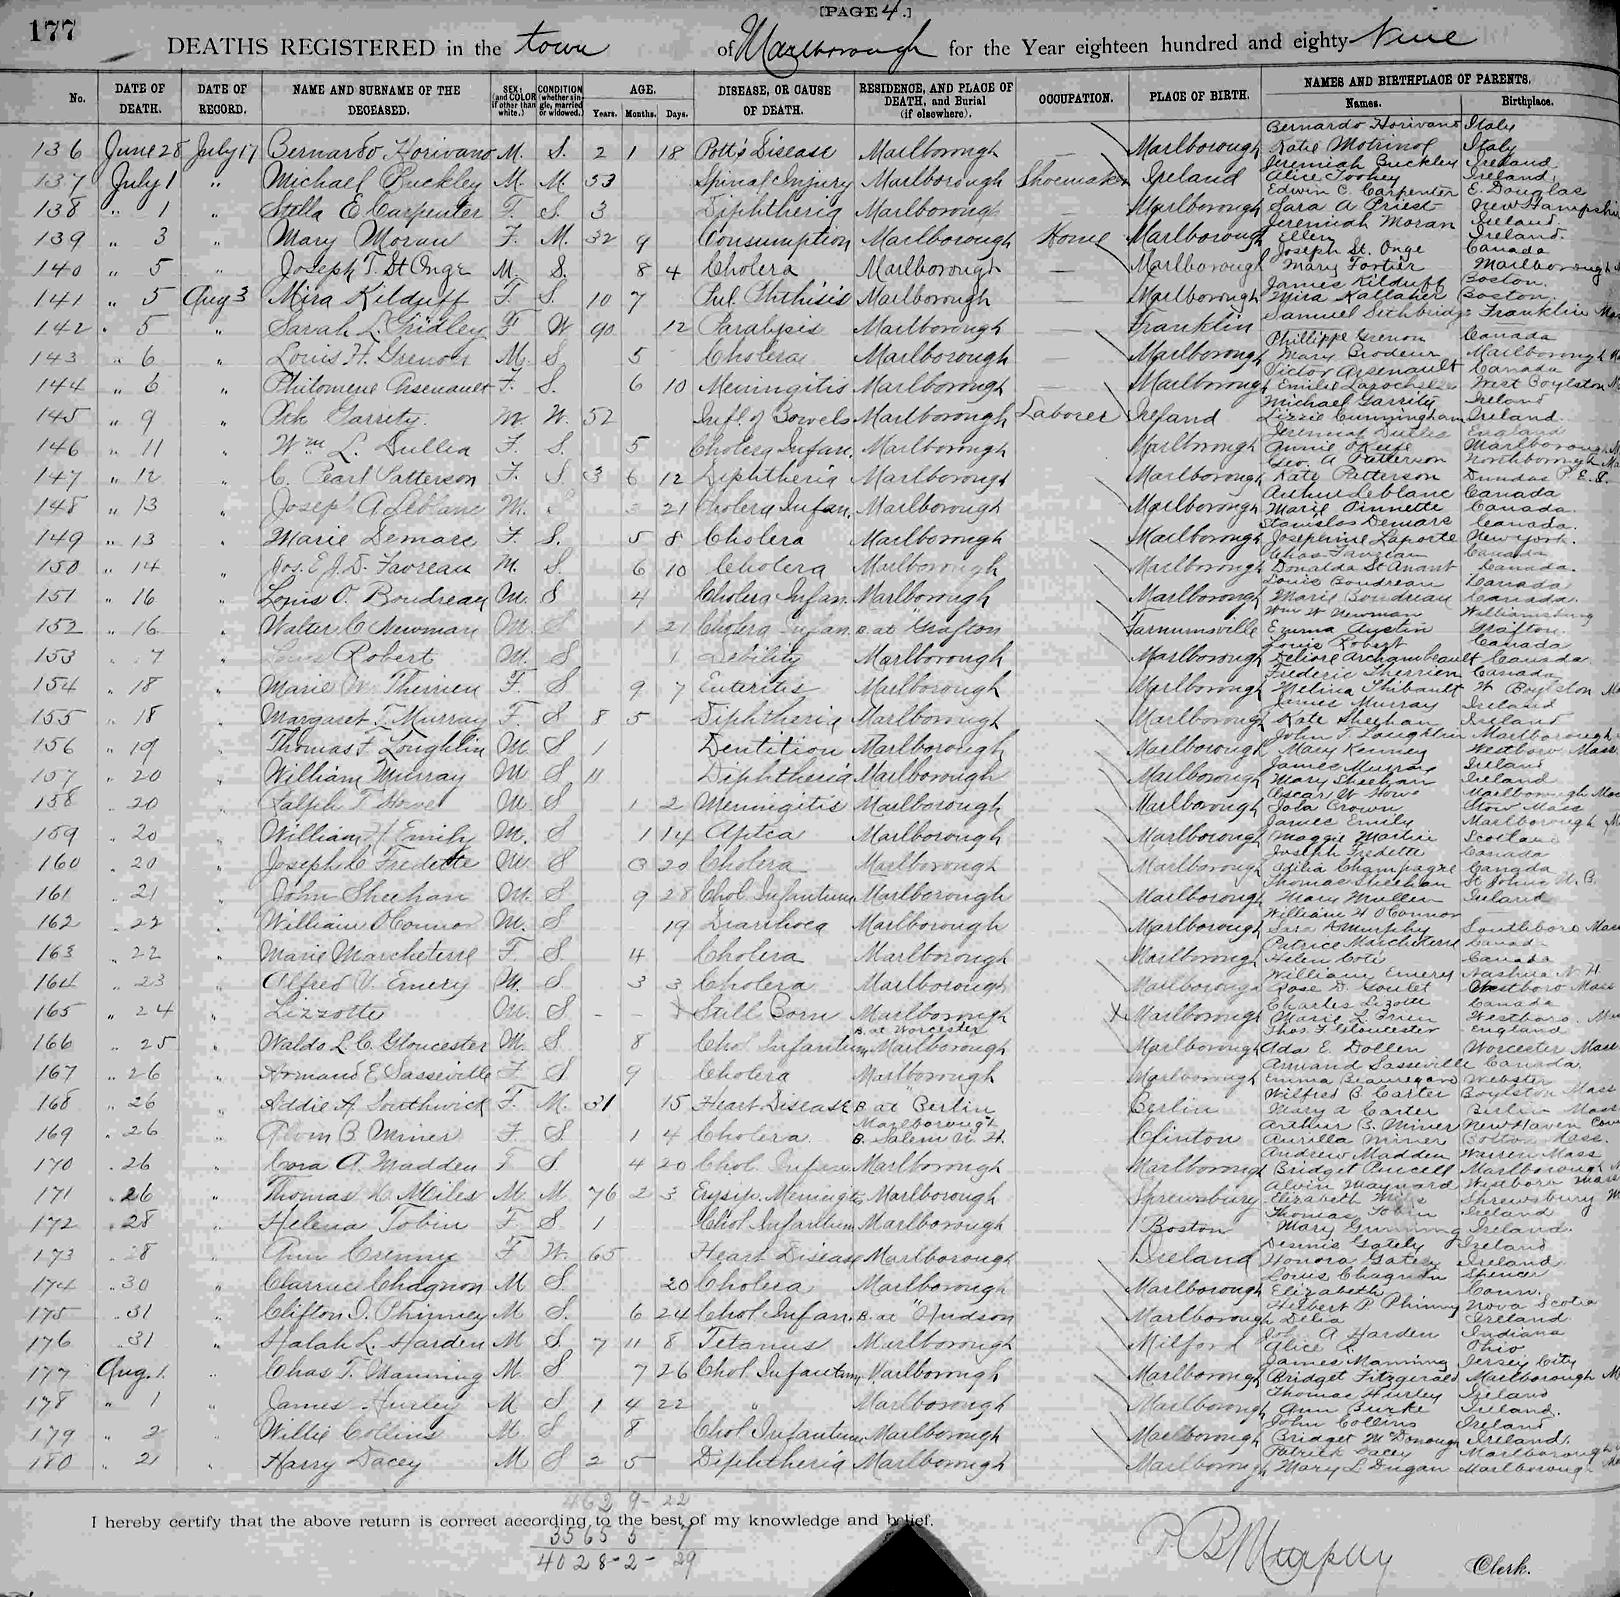 [PAGE 4.]
177
DEATHS REGISTERED in the town of Marlborough for the Year eighteen hundred and eighty Nine
No. DATE OF DEATH. DATE OF RECORD. NAME AND SURNAME OF THE DECEASED. SEX (and COLOR if other than white.) CONDITION (whether single, married or widowed.) AGE. Years. Months. Days. DISEASE, OR CAUSE OF DEATH. RESIDENCE, AND PLACE OF DEATH, and Burial (if elsewhere). OCCUPATION. PLACE OF BIRTH. NAMES AND BIRTHPLACE OF PARENTS. Names. Birthplace.
136 June 28 July 17 Bernardo Horivano M. S. 2 1 18 Pott's Disease Marlborough — Marlborough Bernardo Horivano Italy Katie Italy
137 July 1 " Michael Buckley M. M. 53 Spinal Injury Marlborough Shoemaker Ireland Jeremiah Buckley Ireland Alice Toohey Ireland
138 " 1 " Stella E Carpenter F. S. 3 Diphtheria Marlborough — Marlborough Edwin C. Carpenter E. Douglas Sara A Priest New Hampshire
139 " 3 " Mary Moran F. M. 32 9 Consumption Marlborough Home Marlborough Jeremiah Moran Ireland Ellen Ireland.
140 " 5 " Joseph T. St Onge M. S. 8 4 Cholera Marlborough — Marlborough Joseph St. Onge Canada Mary Fortier Marlborough
141 " 5 Aug 3 Mira Kilduff F. S. 10 7 Pul. Phthisis Marlborough — Marlborough James Kilduff Boston. Mira Kallaher Boston
142 " 5 " Sarah L. Gridley F W. 90 12 Paralysis Marlborough — Franklin Samuel Franklin
143 " 6 " Louis H. Grenon M. S. 5 Cholera Marlborough — Marlborough Phillippe Grenon Canada Mary Brodeur Marlborough
144 " 6 " Philomene Arsenault F. S. 6 10 Meningitis Marlborough — Marlborough Victor Arsenault Canada Emilie Larochelle West Boylston
145 " 9 " Pak Garrity. M. W. 52 Infl. of Bowels Marlborough Laborer Ireland Michael Garrity Ireland Lizzie Cunningham Ireland.
146 " 11 " Wm L. Dullea F. S. 5 Cholera Infan. Marlborough Marlborough Jeremiah England Annie O'Keefe Marlborough
147 " 12 " C. Pearl Patterson F. S. 3 6 12 Diphtheria Marlborough Marlborough Geo. A Patterson Northborough Kate Patterson Dundas P. E. I.
148 " 13 " Joseph A Leblanc M. 21 Cholera Infan. Marlborough Marlborough Arthur Leblanc Canada Marie Pinnette Canada.
149 " 13 " Marie Demarc F. S. 5 8 Cholera Marlborough Marlborough Stanislas Demars Canada. Josephine Laporte New York.
150 " 14 " Jos. E. J. D. Favreau M. S. 6 10 Cholera Marlborough Marlborough Chas Canada Donalda St Amant Canada.
151 " 16 " Louis O. Boudreau M. S 4 Cholera Infan. Marlborough Marlborough Louis Boudreau Canada Marie Boudreau Canada.
152 " 16 " Walter C Newman M. S 1 21 Cholera Infan. B. at Grafton Farnumsville Wm W Newman Williamsburg Emma Austin Grafton.
153 " 7 " Louis Robert M. S 1 Debility Marlborough Marlborough Louis Robert Canada Archambeault Canada
154 " 18 " Marie Therrien F. S 9 7 Enteritis Marlborough Marlborough Frederic Therrien Canada Melina Thibault W Boylston
155 " 18 " Margaret T. Murray F. S 8 5 Diphtheria Marlborough Marlborough James Murray Ireland Kate Sheehan Ireland
156 " 19 " Thomas F. Loughlin M S 1 Dentition Marlborough Marlborough John T. Laughlin Marlborough Mary Kenney Westboro Mass
157 " 20 " William Murray M S 11 Diphtheria Marlborough Marlborough James Murray Ireland Mary Sheehan Ireland
158 " 20 " Ralph T. Howe M S 1 2 Meningitis Marlborough Marlborough Oscar W Howe Marlborough Crown Stow Mass
159 " 20 " William H Emily M. S 1 14 Aptca Marlborough Marlborough James Emily Marlborough Maggie Martin Scotland
160 " 20 " Joseph C Fredette M. S 3 20 Cholera Marlborough Marlborough Joseph Fredette Canada Champagne Canada
161 " 21 " John Sheehan M. S. 9 28 Chol. Infantum Marlborough Marlborough Thomas Sheehan St Johns N. B. Mary Mullen Ireland
162 " 22 " William O'Connor M. S 19 Diarrhoea Marlborough Marlborough William H O'Connor — Sara A Murphy Southboro Mass
163 " 22 " Marie Marcheterre F. S 4 Cholera Marlborough Marlborough Patrice Marcheterre Canada Helen Coté Canada
164 " 23 " Alfred V. Emery M. S 3 3 Cholera Marlborough Marlborough William Emery Nashua N. H Rose D. Goulet Westboro Mass
165 " 24 " Lizzotte M. S. - - Still Born Marlborough X Marlborough Charles Lizotte Canada Marie L. Westboro.
166 " 25 " Waldo L. C. Gloucester M. S 8 Chol Infantum B. at Worcester Marlborough Marlborough Thos. F. Gloucester England Ada E. Dollen Worcester Mass
167 " 26 " Armand E Sasseville F S 9 Cholera Marlborough Marlborough Armand Sasseville Canada Emma Beauregard Webster
168 " 26 " Addie A Southwick F. M. 31 15 Heart Disease B at Berlin Berlin Wilfred B Carter Boylston Mass Mary A Carter Berlin Mass
169 " 26 " B. Miner F. S. 1 4 Cholera Marlborough B. Salem N. H. Clinton Arthur B. Miner New Haven Conn Aurilla Miner Bolton Mass.
170 " 26 " Cora A. Madden F S. 4 20 Chol. Infan Marlborough Marlborough Andrew Madden Warren Mass Bridget Purcell Marlborough
171 " 26 " Thomas W. Miles M. M. 76 2 3 Erysip. Meningts Marlborough Shrewsbury Alvin Maynard Westboro Mass Elizabeth Shrewsbury
172 " 28 " Helena Tobin F. S. 1 Chol Infantum Marlborough Boston Thomas Tobin Ireland Mary Gunning Ireland.
173 " 28 " Ann F W. 65 Heart Disease Marlborough Ireland Dennis Gately Ireland Honora Gately Ireland
174 " 30 " Clarence Chagnon M S. 20 Cholera Marlborough Marlborough Louis Chagnon Spencer Elizabeth Conn.
175 " 31 " Clifton I. Phinney M S. 6 24 Chol Infan. B. at Hudson Marlborough Herbert P Phinney Nova Scotia Delia Ireland
176 " 31 " Halah L. Harden M S. 7 11 8 Tetanus Marlborough Milford A Harden Indiana Alice Ohio
177 Aug. 1. " Chas T. Manning M S 7 26 Chol Infantum Marlborough Marlborough James Manning Jersey City Bridget Fitzgerald Marlborough
178 " 1 " James Hurley M S 1 4 22 " Marlborough Marlborough Thomas Hurley Ireland Ann Burke Ireland.
179 " 2 " Willie Collins M S 8 Chol Infantum Marlborough Marlborough John Collins Ireland Bridget McDonough Ireland.
180 " 2 " Harry Dacey M S 2 5 Diphtheria Marlborough Marlborough Patrick Dacey Marlborough Mary L Dugan Marlborough
462 9- 22
I hereby certify that the above return is correct according to the best of my knowledge and belief.
3565 5 7
4028-2- 29
P. B. Murphy Clerk.